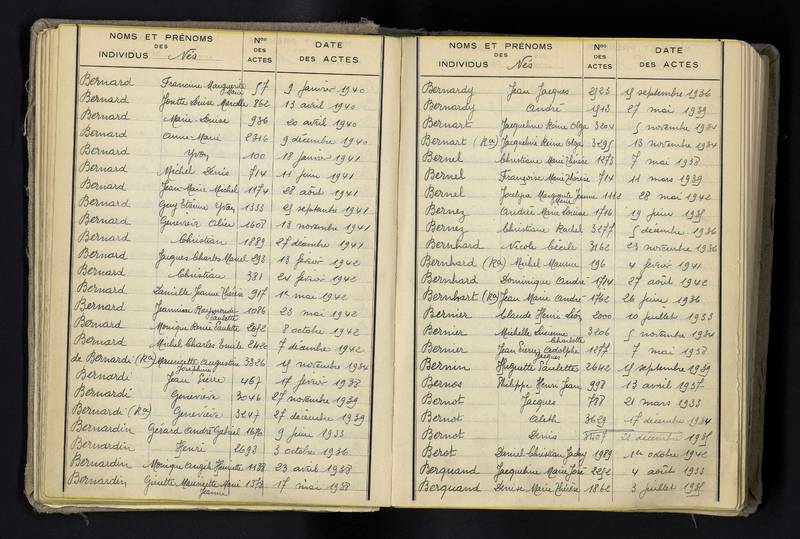 NOMS ET PRÉNOMS DES INDIVIDUS Nés Nos DES ACTES DATE DES ACTES
Bernard Francine Marguerite Marie 57 9 janvier 1940
Bernard Josette Louise Marcelle 862 13 avril 1940
Bernard Marie-Louise 936 20 avril 1940
Bernard Anne-Marie 2316 9 décembre 1940
Bernard Yvon 100 18 janvier 1941
Bernard Michel Denis 714 11 juin 1941
Bernard Jean-Marie-Michel 1174 28 août 1941
Bernard Guy Etienne Yvon 1333 septembre 1941
Bernard Geneviève 1607 13 novembre 1941
Bernard Christian 1889 27 décembre 1941
Bernard Jacques Charles Marcel 293 13 février 1942
Bernard Christian 381 24 février 1942
Bernard Danielle Jeanne 917 1er mai 1942
Bernard Jeannine Raymonde Paulette 1086 23 mai 1942
Bernard Monique Renée Paulette 8 octobre 1942
Bernard Michel Charles Emile 2420 7 décembre 1942
de Bernardi (Ra) Mauricette Augustine Joséphine 3326 novembre 1934
Bernardi Jean Pierre 467 17 février 1938
Bernardi Geneviève 3046 27 novembre 1939
Bernardi (Ra) Geneviève 3247 27 décembre 1939
Bernardin Gérard André Gabriel 9 juin 1933
Bernardin Henri 2693 3 octobre 1936
Bernardin Monique Angèle Henriette 1188 23 avril 1938
Bernardin Ginette Mauricette Marie Jeanne 1373 17 mai 1938
NOMS ET PRÉNOMS DES INDIVIDUS Nés Nos DES ACTES DATE DES ACTES
Bernardy Jean Jacques 2523 septembre 1936
Bernardy André 1513 27 mai 1939
Bernart Jacqueline Reine Olga 3204 5 novembre 1934
Bernart (Ra) Jacqueline Reine Olga 13 novembre 1934
Bernel Christiane Marie Thérèse 1273 7 mai 1938
Bernel Françoise Marie Thérèse 714 11 mars 1939
Bernel Jocelyne Marguerite Jeanne Marie 28 mai 1942
Bernez Andrée Marie Louise 1716 19 juin
Bernez Christiane Rachel 3277 5 décembre 1936
Bernhard Nicole Cécile 3162 23 novembre 1936
Bernhard (Ra) Michel Maurice 196 4 février 1941
Bernhard Dominique André 1714 27 août 1942
Bernhart (Ra) Jean Marie André 1762 26 juin 1936
Bernier Claude Henri Léon 2000 10 juillet 1933
Bernier Michelle Lucienne Charlotte 3206 5 novembre 1934
Bernier Jean Pierre Adolphe Jacques 1277 7 mai 1938
Bernin Huguette Paulette 2642 septembre 1939
Bernos Philippe Henri Jean 998 13 avril 1937
Bernot Jacques 718 21 mars 1933
Bernot Aleth 3629 17 décembre 1934
Bernot Denis 3407 21 décembre
Berot Daniel-Christian Jacky 1989 1er octobre 1942
Berquand Jacqueline Marie José 4 août 1933
Berquand Denise Marie Thérèse 1862 3 juillet